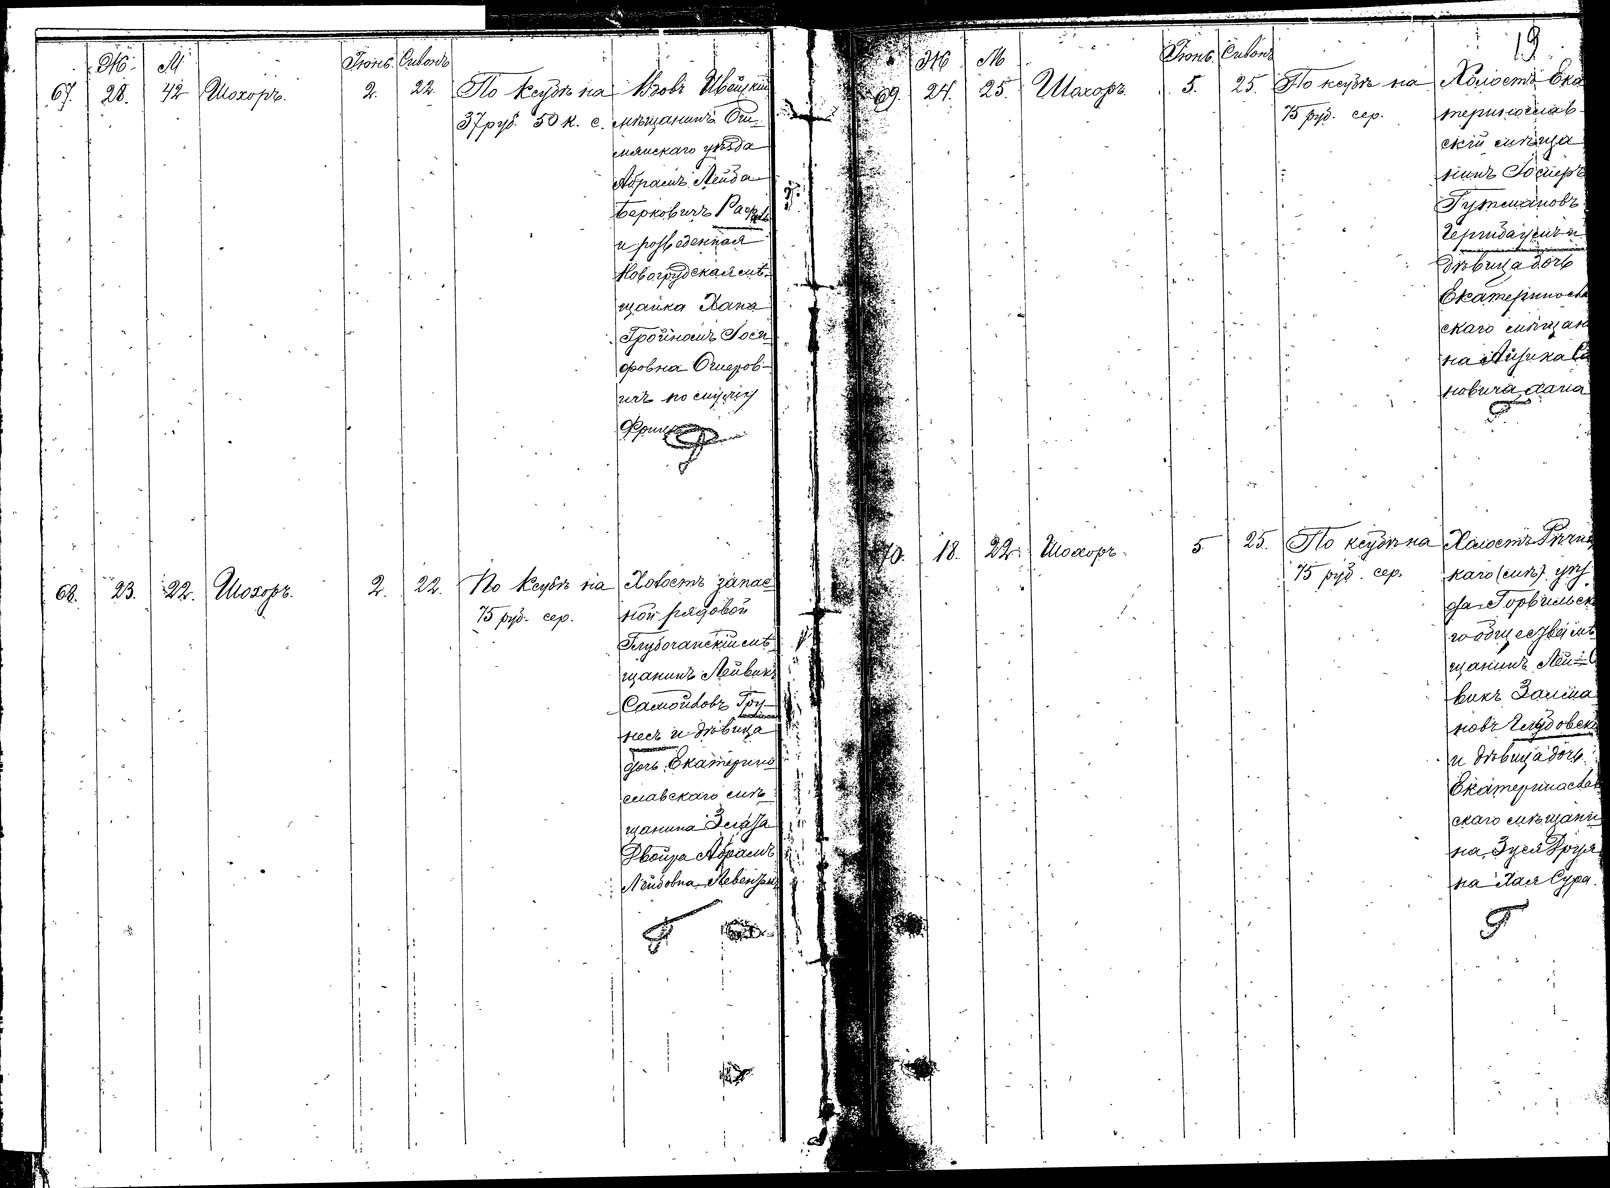 19
Ж М Іюнь. Сивонъ
67. 28. 42 Шохоръ. 2. 22. По ксубѣ на
37 руб. 50 к. с.
Вдовъ Ивецкій
мѣщанинъ Ош-
мянскаго уѣзда
Абрамъ Лейба
Берковичъ
и розведенная
Новогрудская мѣ-
щанка Хана
Гройномъ Госи-
фовна Ошеров-
ичъ по мужу
68. 23. 22. Шохоръ. 2. 22. По ксубѣ на
75 руб. сер.
Холостъ запас-
ной рядовой
Глубочанскій мѣ-
щанинъ Лейвикъ
Самойловъ Гру-
несъ и дѣвица
дочь Екатерино-
славскаго мѣ-
щанина Злата
Двойра Абрамъ
Лейбовна
Ж М Іюнь. Сивонъ
69. 24. 25. Шохоръ 5. 25. По ксубѣ на
75 руб. сер.
Холостъ Ека
теринослав-
скій мѣща
нинъ
Гутмановъ
и
дѣвица дочь
Екатеринослав
скаго мѣщан
на Айзика
новича Хана
70. 18. 22. Шохоръ. 5 25. По ксубѣ на
75 руб. сер.
Холостъ Рѣчи
каго (мин.) уѣз
да Горвильск
го общества мѣ
щанинъ Лей-
викъ Залма
новъ
и дѣвица дочь
Екатеринослав
скаго мѣщани
на Зуся
на Хая Сура.